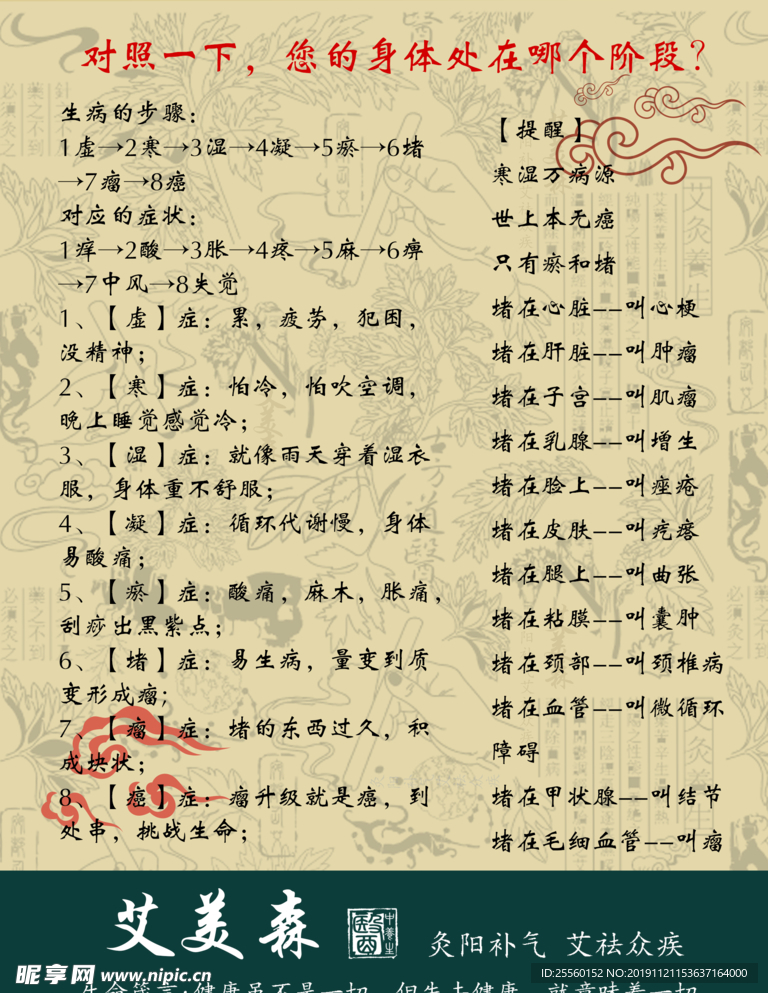 对照一下，您的身体处在哪个阶段？
生病的步骤：
1虚→2寒→3湿→4凝→5瘀→6堵
→7瘤→8癌
对应的症状：
1痒→2酸→3胀→4疼→5麻→6痹
→7中风→8失觉
1、【虚】症：累，疲劳，犯困，
没精神；
2、【寒】症：怕冷，怕吹空调，
晚上睡觉感觉冷；
3、【湿】症：就像雨天穿着湿衣
服，身体重不舒服；
4、【凝】症：循环代谢慢，身体
易酸痛；
5、【瘀】症：酸痛，麻木，胀痛，
刮痧出黑紫点；
6、【堵】症：易生病，量变到质
变形成瘤；
7、【瘤】症：堵的东西过久，积
成块状；
8、【癌】症：瘤升级就是癌，到
处串，挑战生命；
【提醒】
寒湿万病源
世上本无癌
只有瘀和堵
堵在心脏--叫心梗
堵在肝脏--叫肿瘤
堵在子宫--叫肌瘤
堵在乳腺--叫增生
堵在脸上--叫痤疮
堵在皮肤--叫疙瘩
堵在腿上--叫曲张
堵在粘膜--叫囊肿
堵在颈部--叫颈椎病
堵在血管--叫微循环
障碍
堵在甲状腺--叫结节
堵在毛细血管--叫瘤
艾美森
中医养生
灸阳补气 艾祛众疾
昵享网 www.nipic.cn
ID:25560152 NO:20191121153637164000
生命箴言:健康虽不是一切，但失去健康，就意味着一切